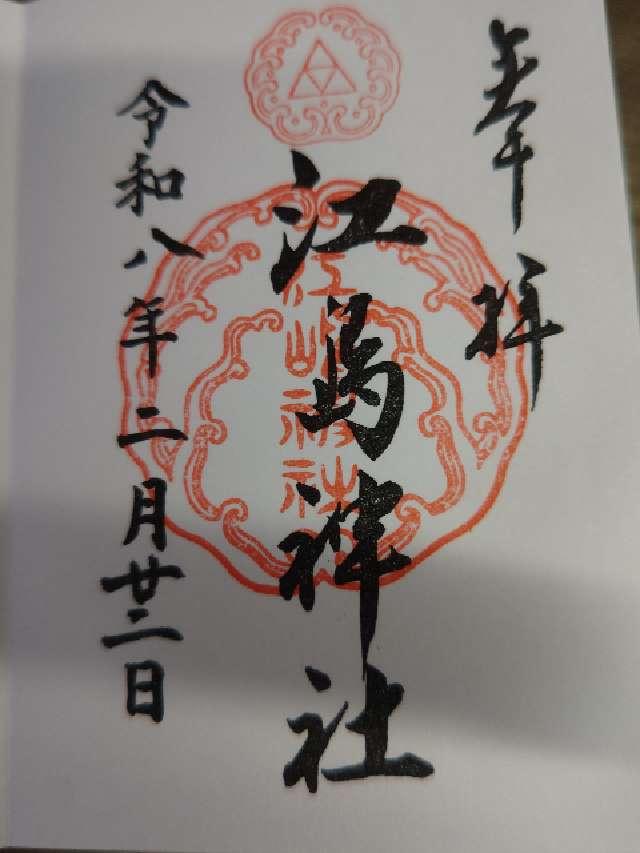 奉拝
江島神社
江島神社
令和八年二月廿二日